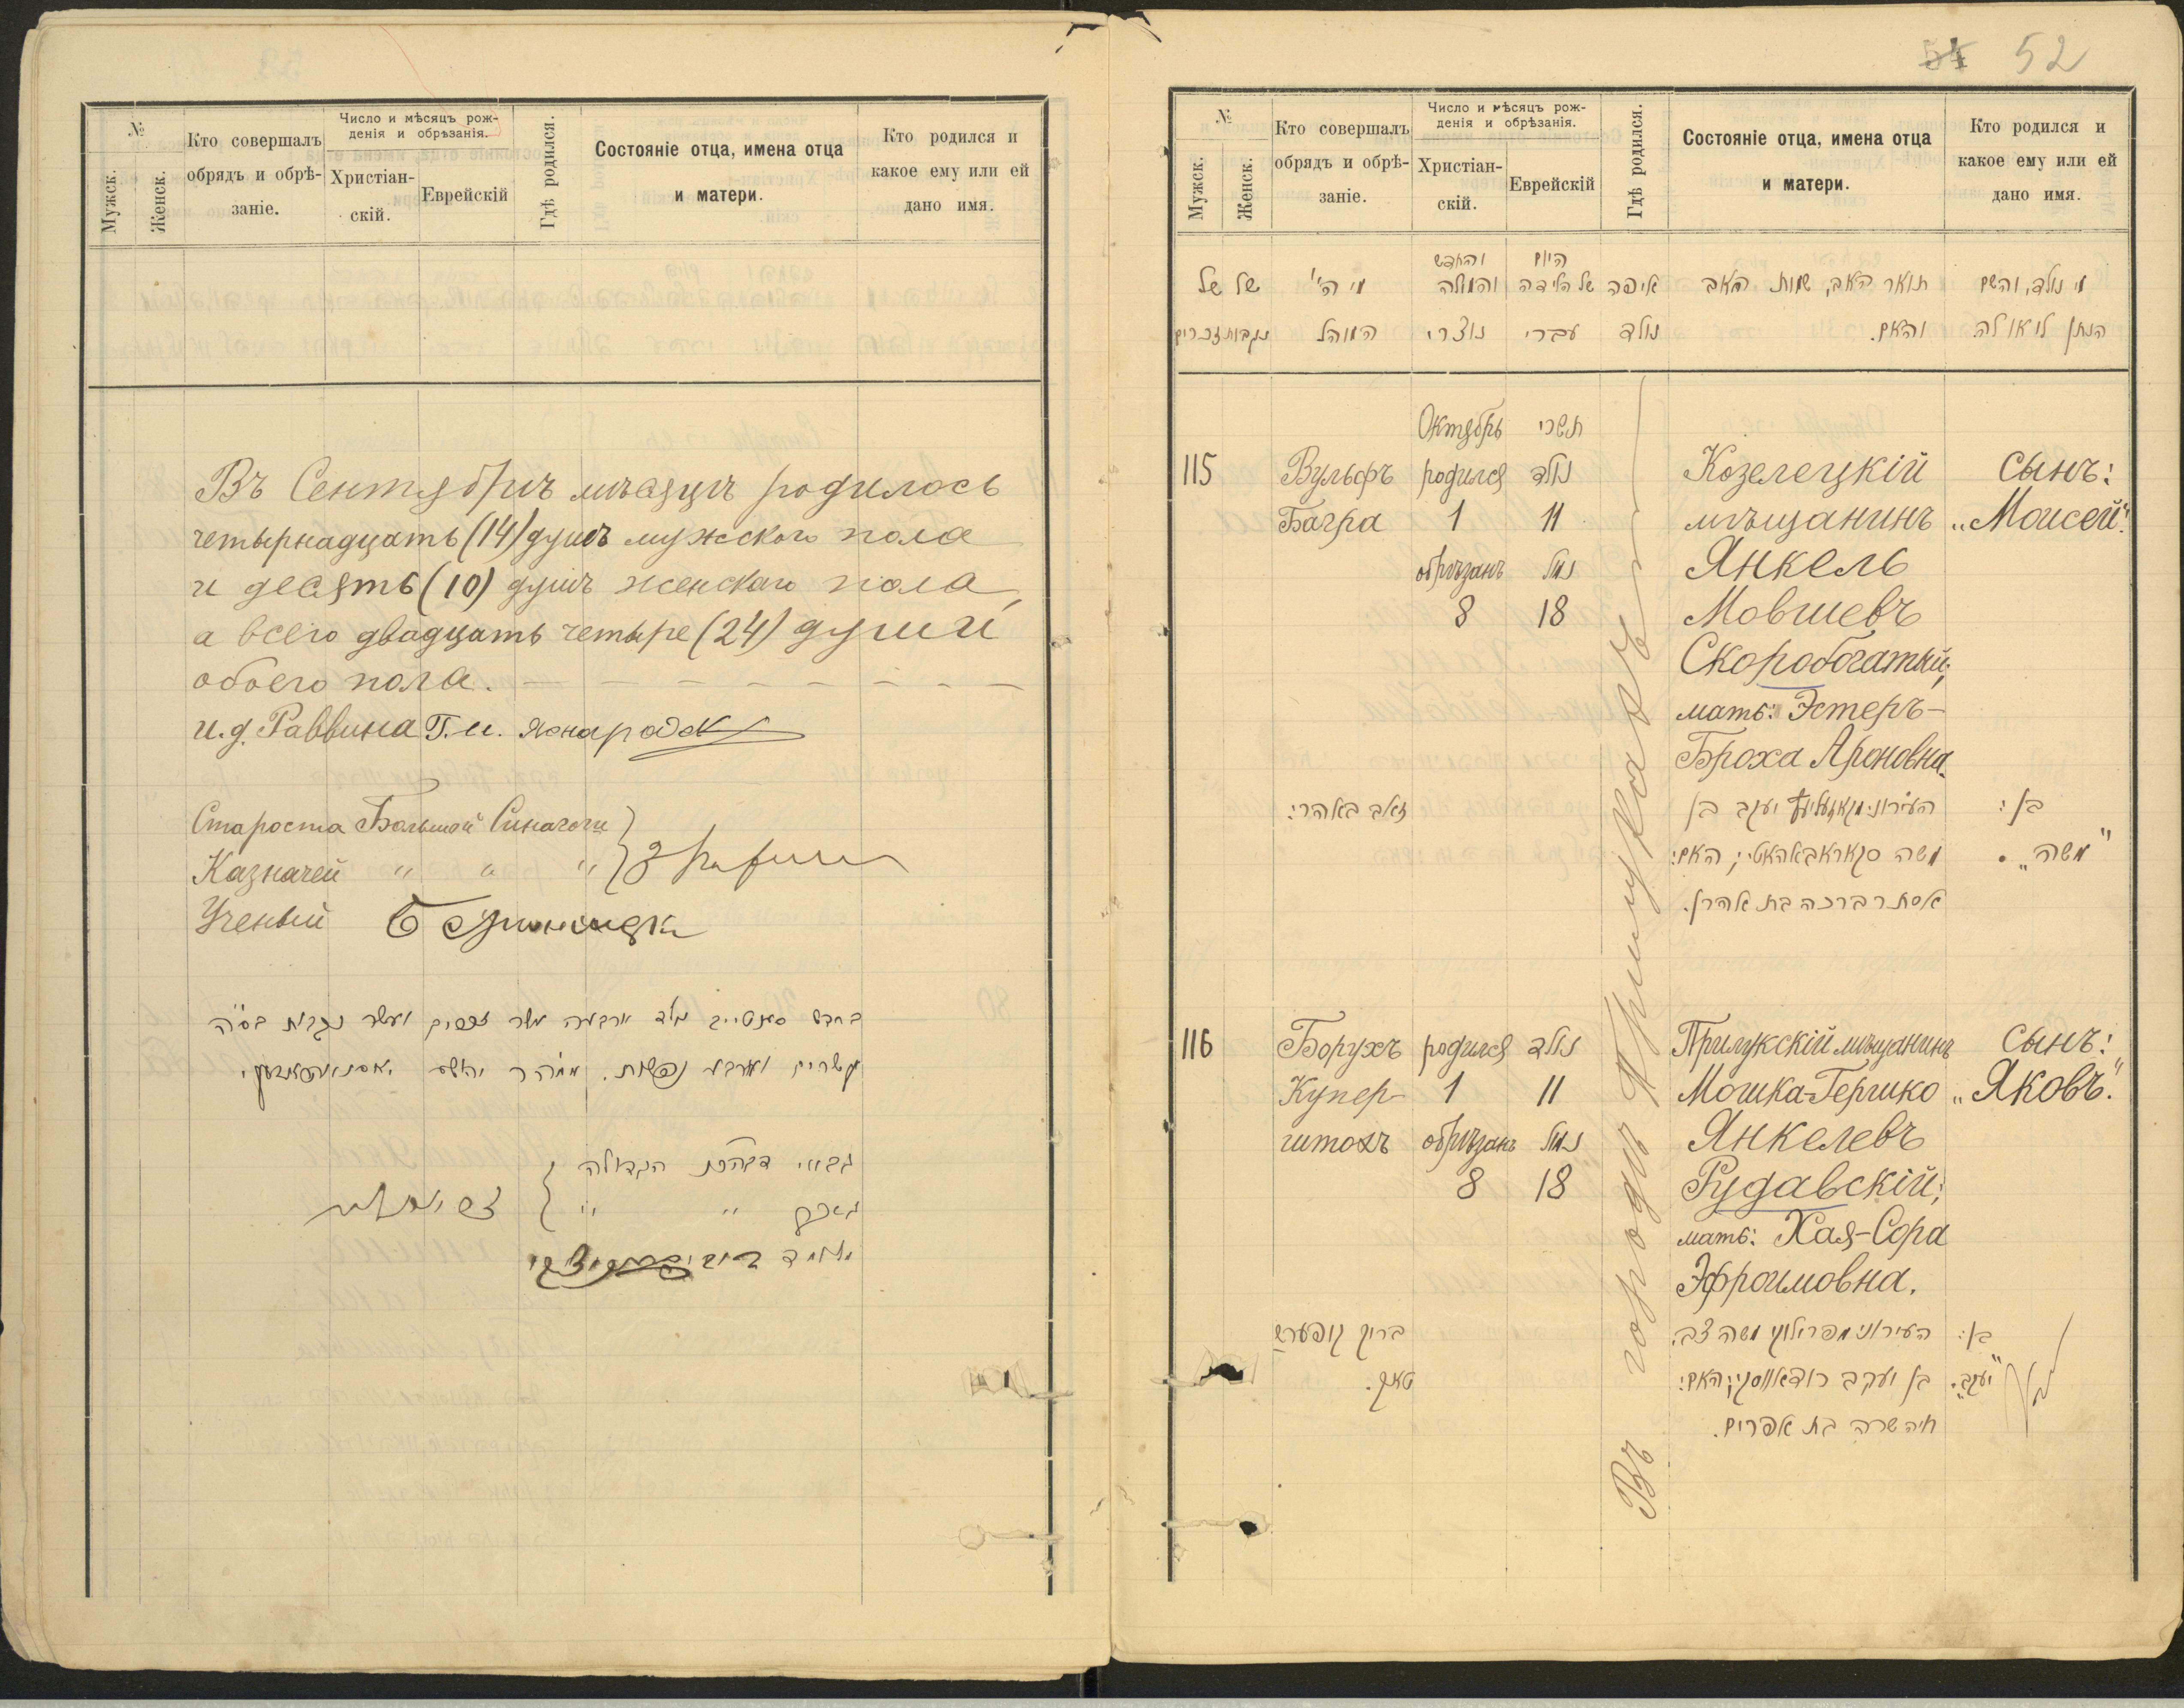 №
Мужск.
Женск.
Кто совершалъ
обрядъ и обрѣ-
заніе.
Число и мѣсяцъ рож-
денія и обрѣзанія.
Христіан-
скій.
Еврейскій
Гдѣ родился.
Состояніе отца, имена отца
и матери.
Кто родился и
какое ему или ей
дано имя.
Въ Сентябрѣ мѣсяцѣ родилось
четырнадцать (14) душъ мужского пола
и десять (10) душъ женскаго пола,
а всего двадцать четыре (24) души
обоего пола.
И. д. Раввина Г. И.
Староста Большой Синагоги
Казначей " " "
Ученый
בחדש נולד ארבעה עשר זכרים ועשר נקבות בס"ה
עשרים וארבע נפשות.
גבאי דביהכ"נ הגדולה
" "
51 52
№
Мужск.
Женск.
Кто совершалъ
обрядъ и обрѣ-
заніе.
Число и мѣсяцъ рож-
денія и обрѣзанія.
Христіан-
скій.
Еврейскій
Гдѣ родился.
Состояніе отца, имена отца
и матери.
Кто родился и
какое ему или ей
дано имя.
היום והחדש
של של מי הי' והמולה של הלידה איפה תואר האב, שמות האב מי נולד, והשם
נקבות זכרים המוהל נוצרי עברי נולד והאם. הנתן לו או לה
Октябрь תשרי
115 Вульфъ родился נולד Козелецкій сынъ:
Багра 1 11 мѣщанинъ „Моисей".
обрѣзанъ נמול Янкель
8 18 Мовшевъ
Скоробогатый;
мать: Эстеръ-
Броха Ароновна.
זאב באהרי: העירוני יעקב בן בן:
משה סקאראבאהאטי; האם: "משה".
אסתר ברכה בת אהרן.
Въ городѣ Прилукахъ
116 Борухъ родился נולד Прилукскій мѣщанинъ сынъ:
Купер- 1 11 Мошка-Гершко „Яковъ".
штохъ обрѣзанъ נמול Янкелевъ
8 18 Рудавскій;
мать: Хая-Сора
Эфроимовна.
ברוך קופערש העירוני מפרילוקי משה צבי בן:
טאך. בן יעקב רודאווסקי; האם: "יעקב".
חיה שרה בת אפרים.